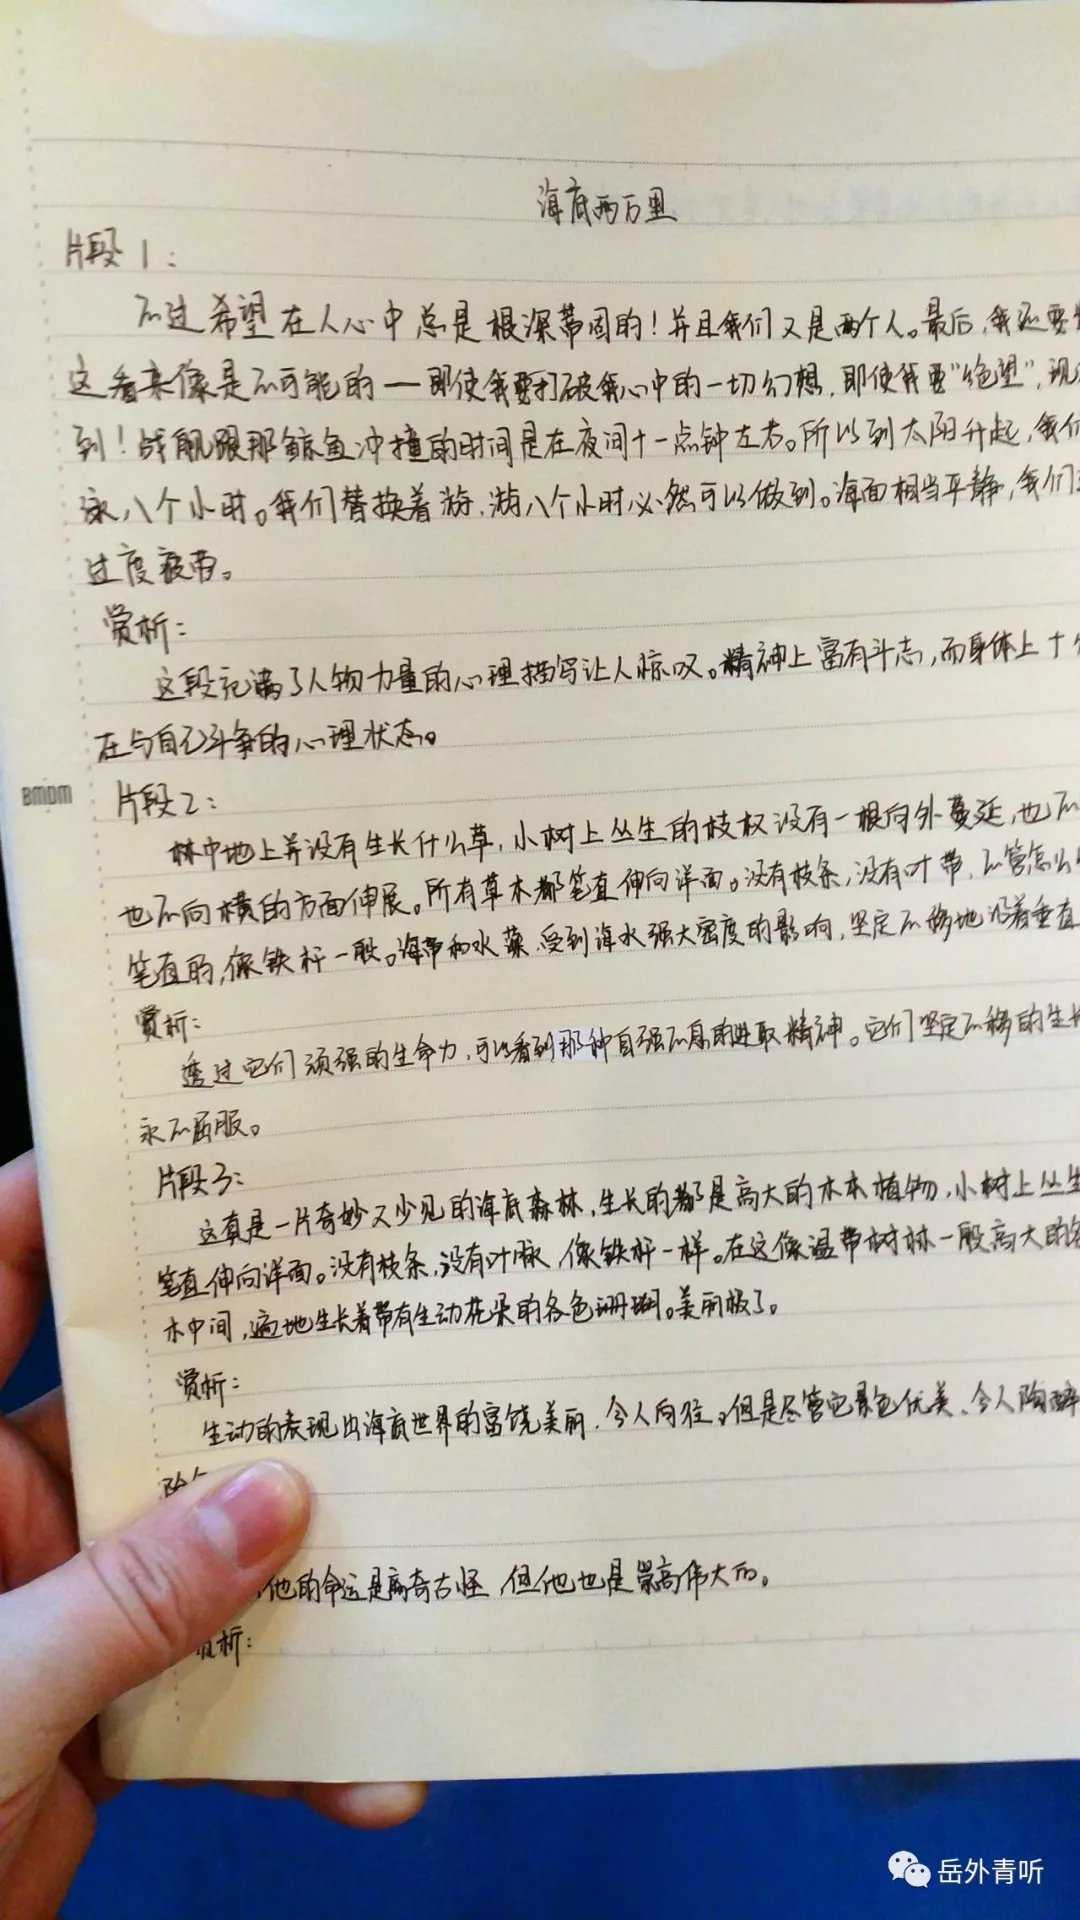 海底两万里
片段1：
不过希望在人心中总是根深蒂固的！并且我们又是两个人。最后，我还要
这看来像是不可能的——即使我要打破我心中的一切幻想，即使我要“绝望”，现
到！战舰跟那鲸鱼冲撞的时间是在夜间十一点钟左右。所以到太阳升起，我们
泳八个小时。我们替换着游，游八个小时必然可以做到。海面相当平静，我们
过度疲劳。
赏析：
这段充满了人物力量的心理描写让人惊叹。精神上富有斗志，而身体上十分
在与自己斗争的心理状态。
BMDM
片段2：
林中地上并没有生长什么草，小树上丛生的枝杈没有一根向外蔓延，也不
也不向横的方面伸展。所有草木都笔直伸向洋面。没有枝条，没有叶带，不管怎么
笔直的，像铁杆一般。海带和水藻，受到海水强大密度的影响，坚定不移地沿着垂直
赏析：
透过它们顽强的生命力，可以看到那种自强不息的进取精神。它们坚定不移的生长
永不屈服。
片段3：
这真是一片奇妙又少见的海底森林，生长的都是高大的木本植物，小树上丛生
笔直伸向洋面。没有枝条，没有叶脉，像铁杆一样。在这像温带树林一般高大的各
木中间，遍地生长着带有生动花朵的各色珊瑚。美丽极了。
赏析：
生动的表现出海底世界的富饶美丽，令人向往。但是尽管它景色优美、令人陶醉
他的命运是离奇古怪，但他也是崇高伟大的。
赏析：
岳外青听